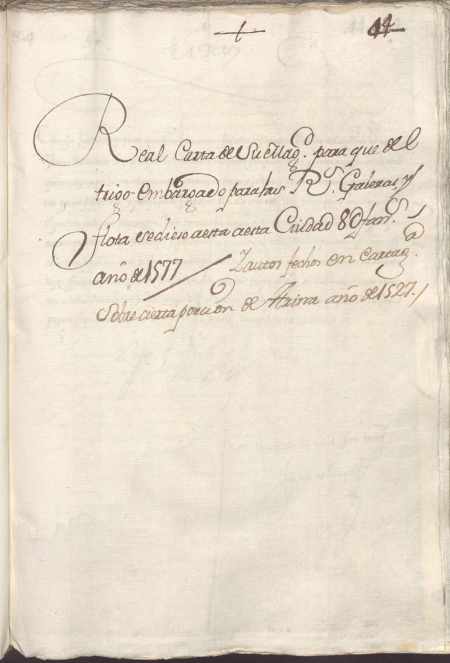 44
Real Carta de Su Mag. para que del
trigo embargado para las Rs. Galeras, y
flota se diese a esta Ciudad 80 fans.
año de 1577 / Zautos fechos en Cartag.a
sobre cierta porcion de Arina año de 1527./